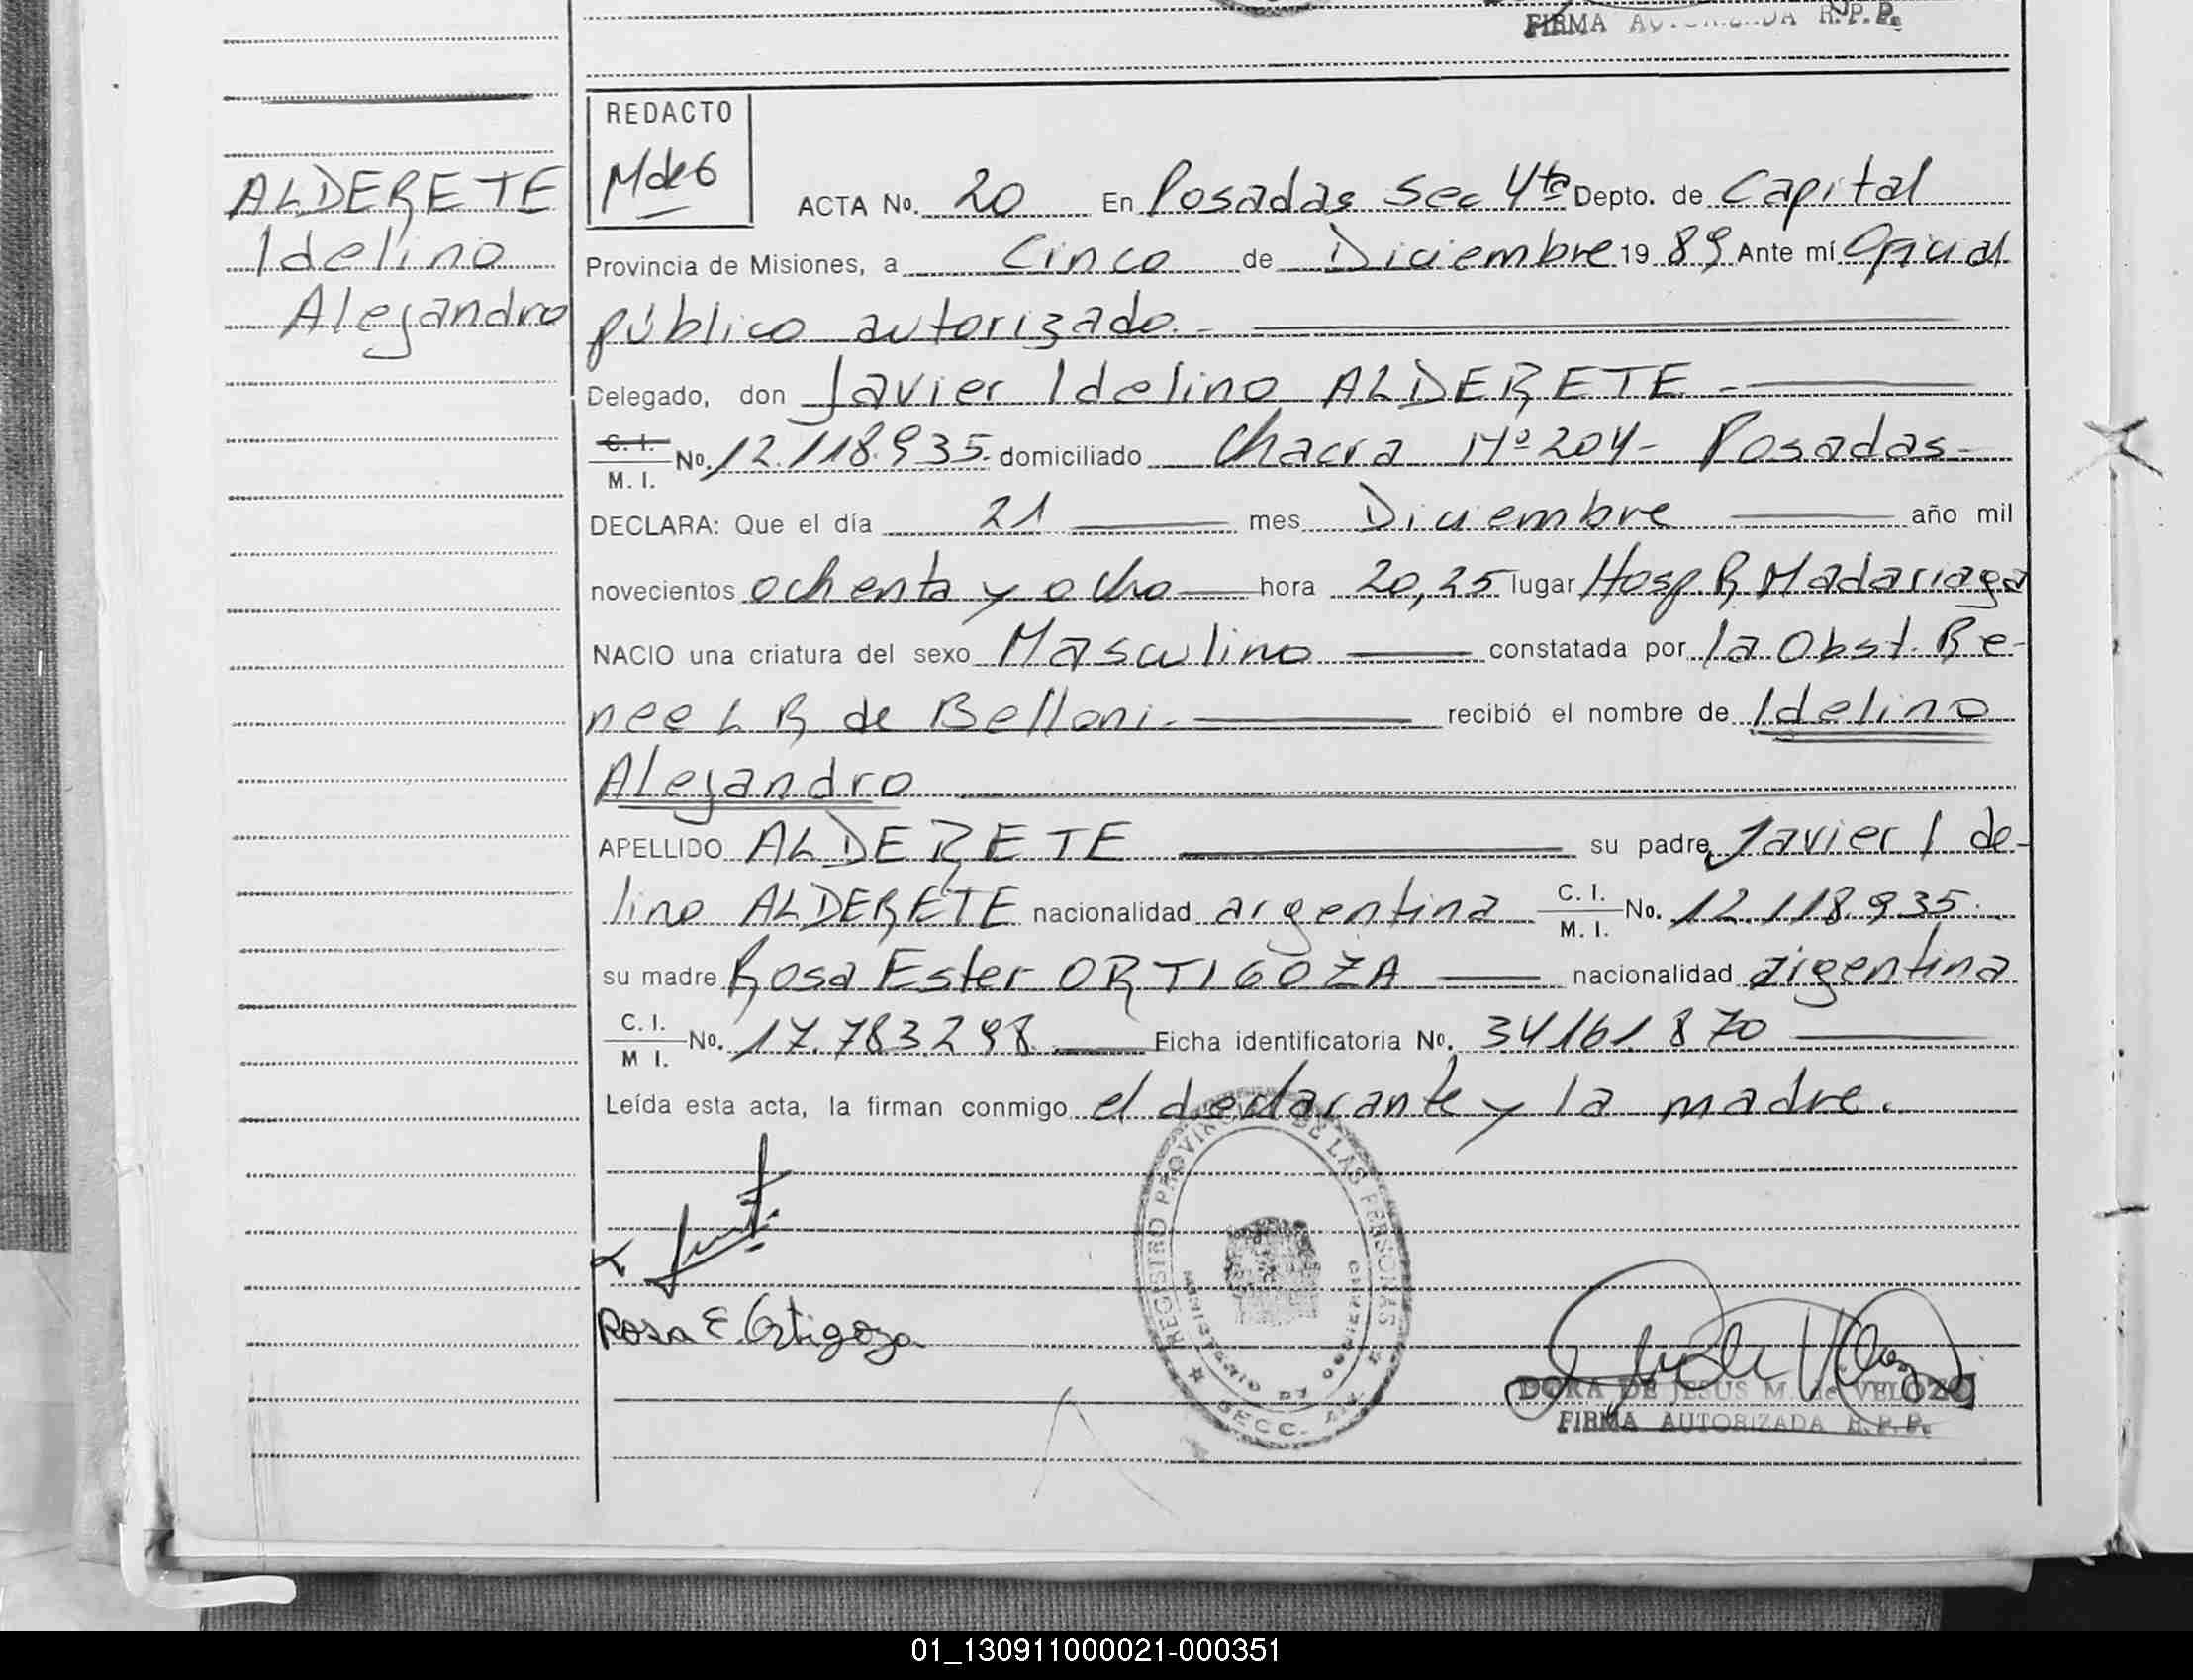 FIRMA AUTORIZADA R.P.P.
REDACTO
MdeG
ALDERETE
Idelino
Alejandro
ACTA No. 20 En Posadas Sec 4ta Depto. de Capital
Provincia de Misiones, a Cinco de Diciembre 19 89 Ante mí Oficial
público autorizado.-
Delegado, don Javier Idelino ALDERETE.-
C. I. M. I. No. 12.118.935. domiciliado Chacra Nº 204- Posadas-
DECLARA: Que el día 21 mes Diciembre año mil
novecientos ochenta y ocho hora 20,25 lugar Hosp. R. Madariaga
NACIO una criatura del sexo Masculino constatada por la Obst. Re-
nee L R de Belloni.- recibió el nombre de Idelino
Alejandro
APELLIDO ALDERETE su padre Javier Ide-
lino ALDERETE nacionalidad argentina C. I. M. I. No. 12.118.935.
su madre Rosa Ester ORTIGOZA nacionalidad argentina
C. I. M I. No. 17.783.298 Ficha identificatoria No. 34161870
Leída esta acta, la firman conmigo el declarante y la madre.
REGISTRO PROVINCIAL DE LAS PERSONAS
MINISTERIO DE GOBIERNO
SECC.
Rosa E. Ortigoza
DORA DE JESUS M. de VELOZO
FIRMA AUTORIZADA R.P.P.
01_130911000021-000351